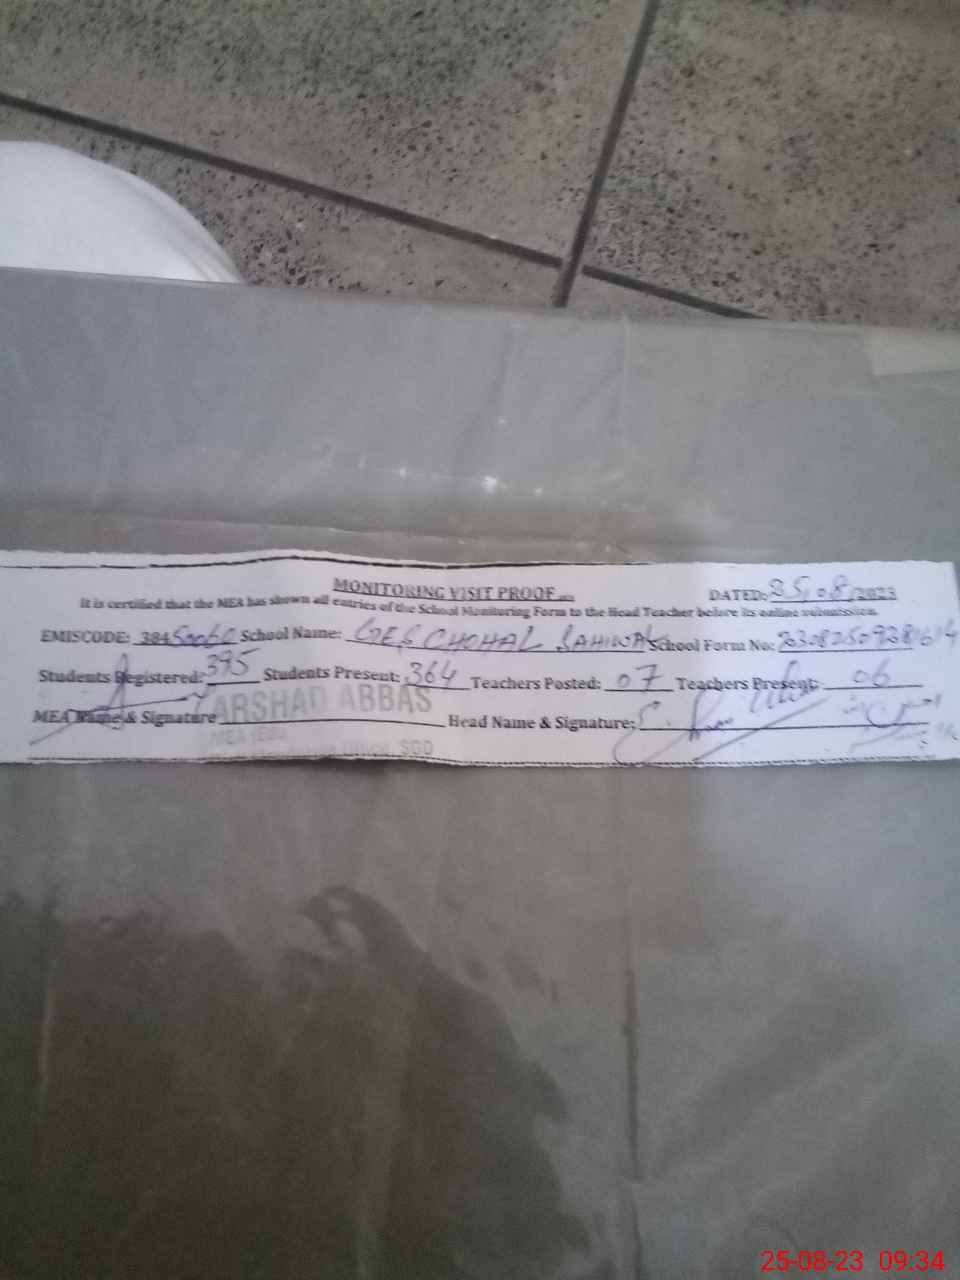 MONITORING VISIT PROOF
DATED: 25/08/2023
It is certified that the MEA has shown all entries of the School Monitoring Form to the Head Teacher before its online submission.
EMISCODE: 384 School Name: GES CHOHAL SAHIWAL School Form No:
Students Registered: 395 Students Present: 364 Teachers Posted: 07 Teachers Present: 06
MEA Name & Signature ARSHAD ABBAS Head Name & Signature:
MEA SGD
25-08-23 09:34